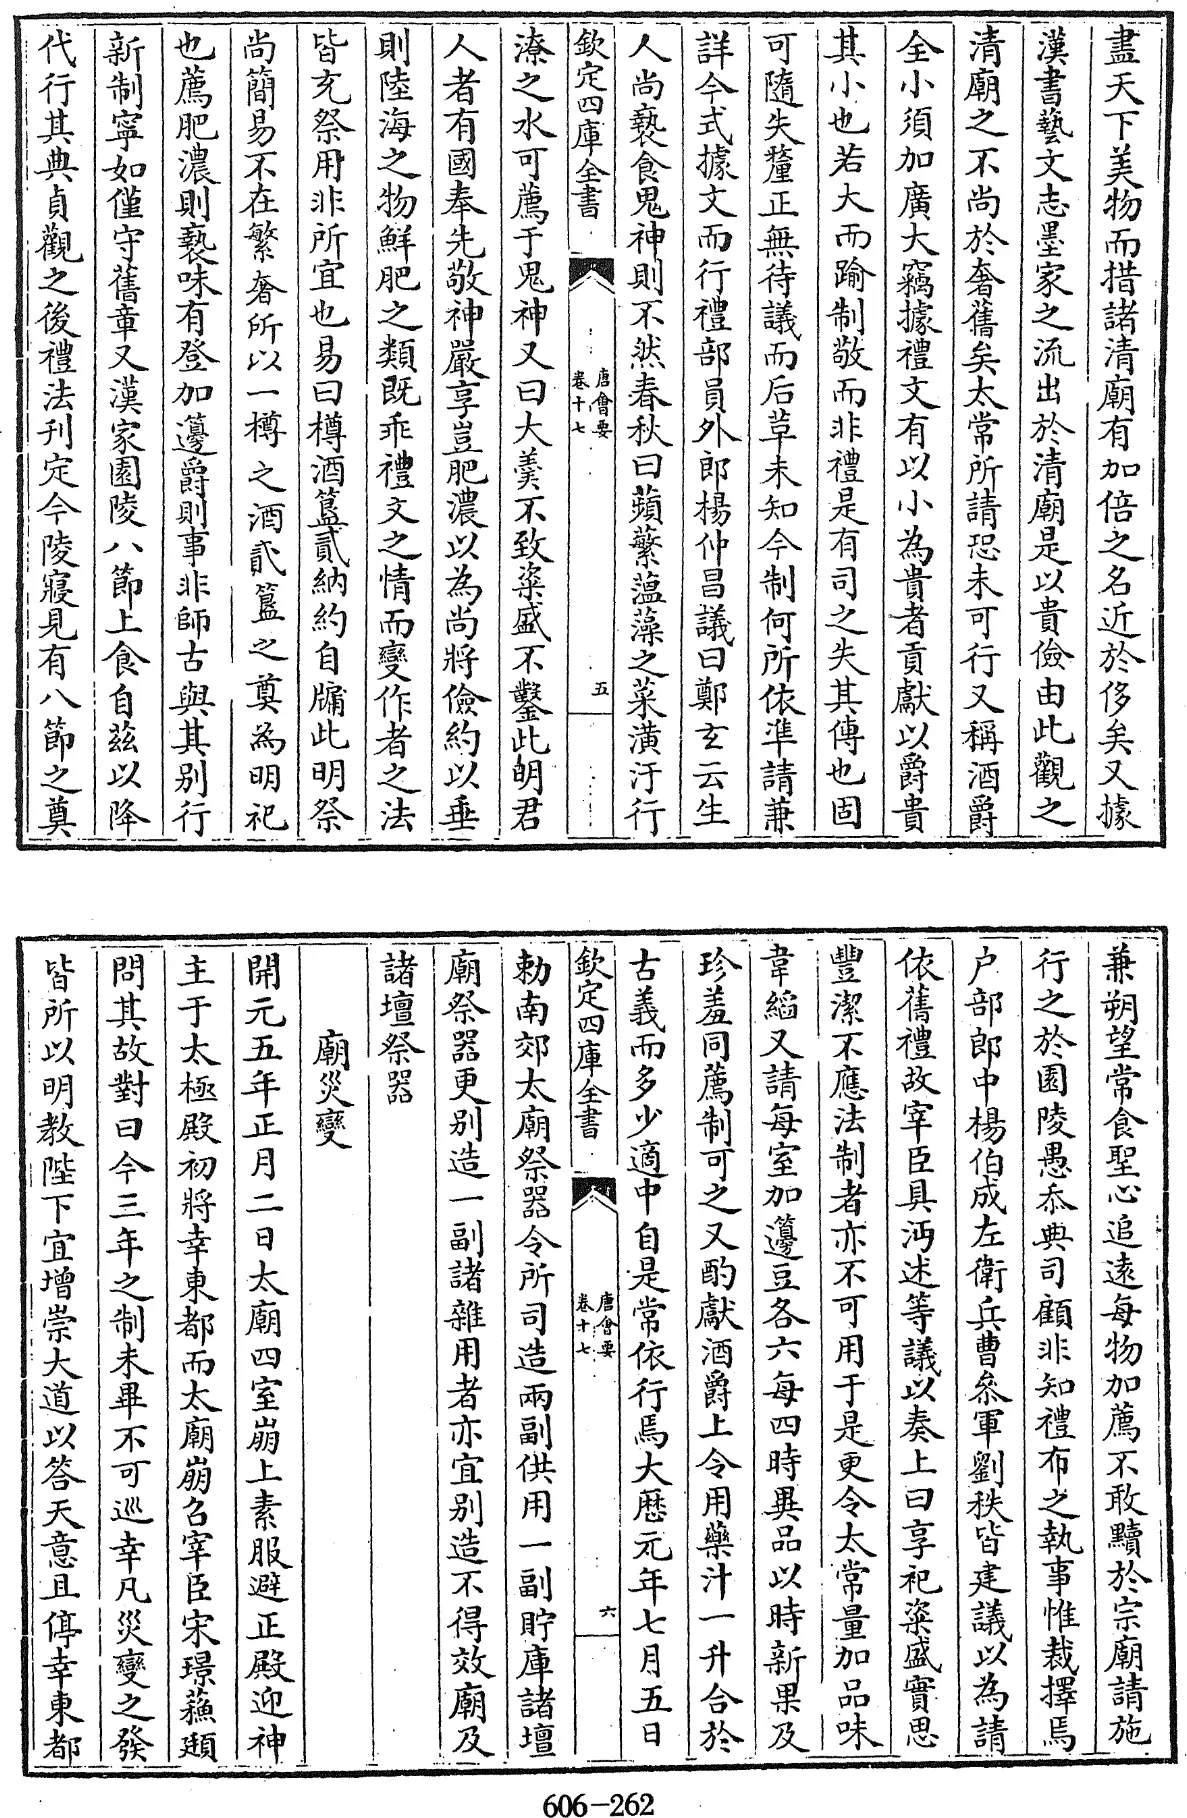 盡天下美物而措諸清廟有加倍之名近於侈矣又據
漢書藝文志墨家之流出於清廟是以貴儉由此觀之
清廟之不尚於奢舊矣太常所請恐未可行又稱酒爵
全小須加廣大竊據禮文有以小為貴者貢獻以爵貴
其小也若大而踰制敬而非禮是有司之失其傳也固
可隨失釐正無待議而后草未知今制何所依準請兼
詳今式據文而行禮部員外郎楊仲昌議曰鄭玄云生
人尚褻食鬼神則不然春秋曰蘋蘩薀藻之菜潢汙行
欽定四庫全書
唐會要
卷十七
五
潦之水可薦于鬼神又曰大羹不致粢盛不鑿此明君
人者有國奉先敬神嚴享豈肥濃以為尚將儉約以垂
則陸海之物鮮肥之類既乖禮文之情而變作者之法
皆充祭用非所宜也易曰樽酒簋貳納約自牖此明祭
尚簡易不在繁奢所以一樽之酒貳簋之奠為明祀
也薦肥濃則褻味有登加籩爵則事非師古與其别行
新制寧如僅守舊章又漢家園陵八節上食自茲以降
代行其典貞觀之後禮法刋定今陵寢見有八節之奠
兼朔望常食聖心追遠每物加薦不敢黷於宗廟請施
行之於園陵愚忝典司顧非知禮布之執事惟裁擇焉
户部郎中楊伯成左衛兵曹叅軍劉秩皆建議以為請
依舊禮故宰臣具沔述等議以奏上曰享祀粢盛實思
豐潔不應法制者亦不可用于是更令太常量加品味
韋縚又請每室加籩豆各六每四時異品以時新果及
珍羞同薦制可之又酌獻酒爵上令用藥汁一升合於
古義而多少適中自是常依行焉大厯元年七月五日
欽定四庫全書
唐會要
卷十七
六
勅南郊太廟祭器令所司造兩副供用一副貯庫諸壇
廟祭器更别造一副諸雜用者亦宜别造不得效廟及
諸壇祭器
廟災變
開元五年正月二日太廟四室崩上素服避正殿迎神
主于太極殿初將幸東都而太廟崩召宰臣宋璟蘓頲
問其故對曰今三年之制未畢不可巡幸凡災變之發
皆所以明教陛下宜增崇大道以答天意且停幸東都
606-262